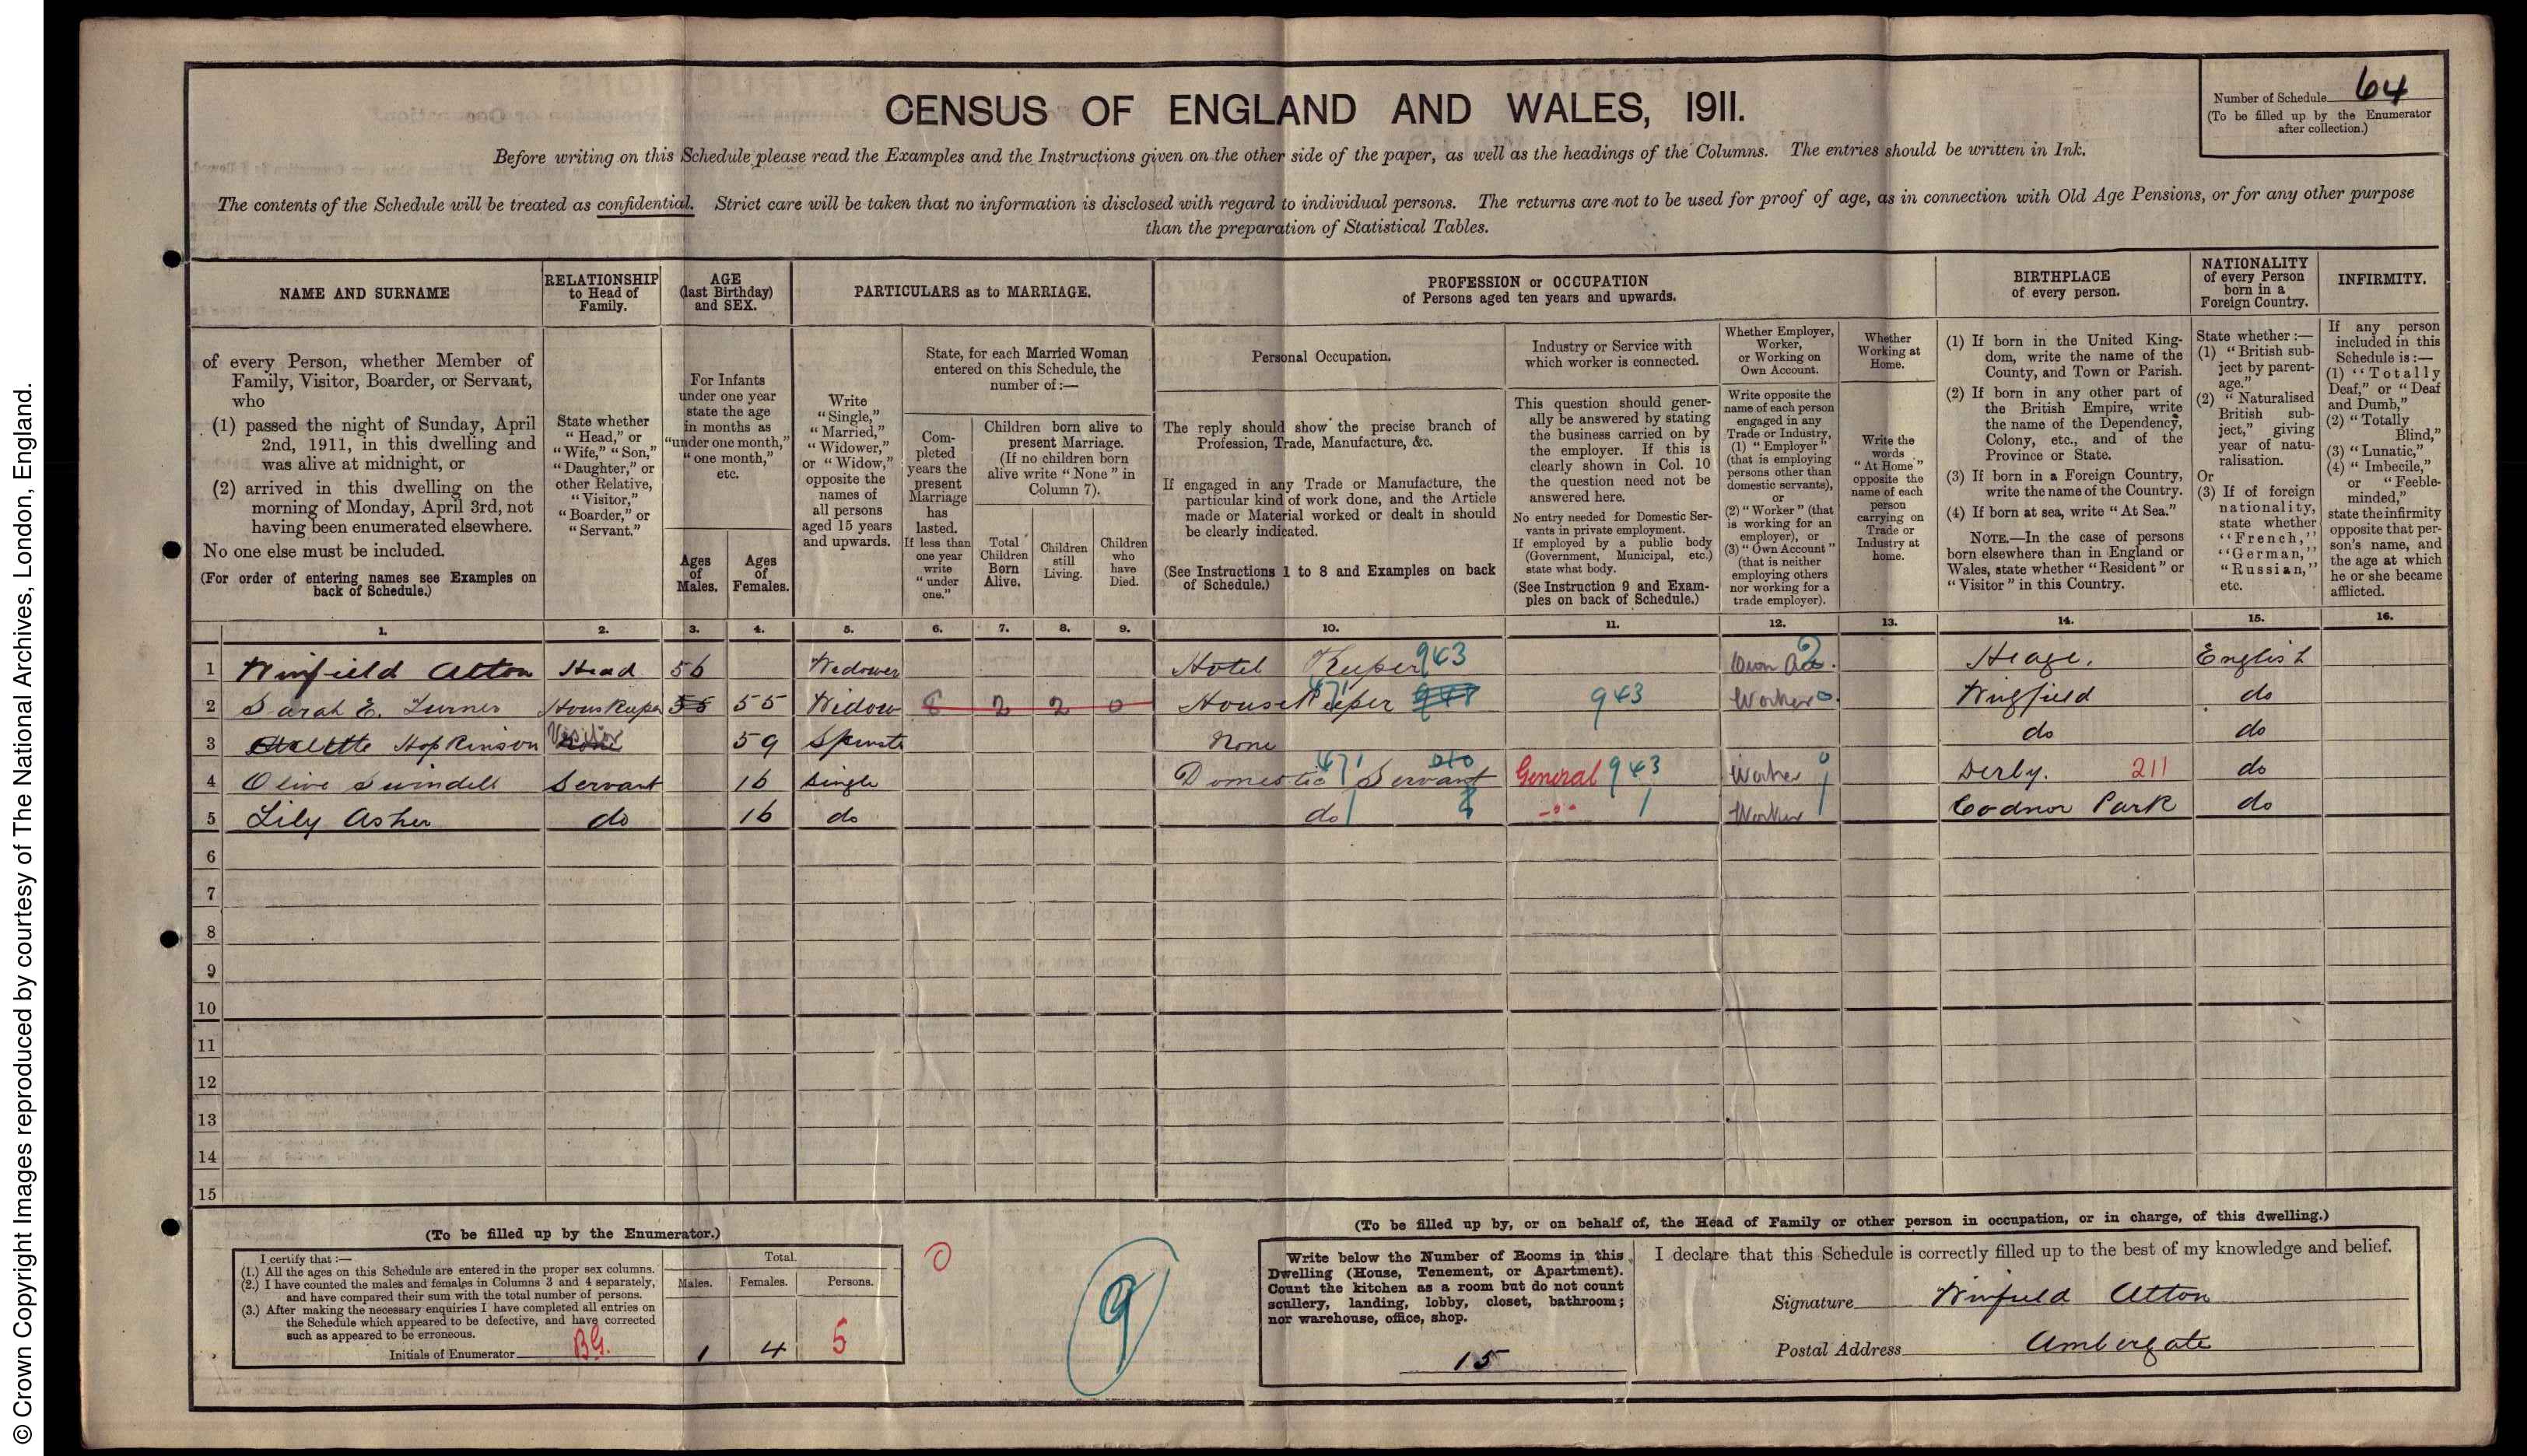 © Crown Copyright Images reproduced by courtesy of The National Archives, London, England.
CENSUS OF ENGLAND AND WALES, 1911.
Number of Schedule 64
(To be filled up by the Enumerator
after collection.)
Before writing on this Schedule please read the Examples and the Instructions given on the other side of the paper, as well as the headings of the Columns. The entries should be written in Ink.
The contents of the Schedule will be treated as confidential. Strict care will be taken that no information is disclosed with regard to individual persons. The returns are not to be used for proof of age, as in connection with Old Age Pensions, or for any other purpose
than the preparation of Statistical Tables.
NAME AND SURNAME
of every Person, whether Member of
Family, Visitor, Boarder, or Servant,
who
(1) passed the night of Sunday, April
2nd, 1911, in this dwelling and
was alive at midnight, or
(2) arrived in this dwelling on the
morning of Monday, April 3rd, not
having been enumerated elsewhere.
No one else must be included.
(For order of entering names see Examples on
back of Schedule.)
RELATIONSHIP
to Head of
Family.
State whether
"Head," or
"Wife," "Son,"
"Daughter," or
other Relative,
"Visitor,"
"Boarder," or
"Servant."
AGE
(last Birthday)
and SEX.
For Infants
under one year
state the age
in months as
"under one month,"
"one month,"
etc.
Ages
of
Males.
Ages
of
Females.
PARTICULARS as to MARRIAGE.
Write
"Single,"
"Married,"
"Widower,"
or "Widow,"
opposite the
names of
all persons
aged 15 years
and upwards.
State, for each Married Woman
entered on this Schedule, the
number of:—
Com-
pleted
years the
present
Marriage
has
lasted.
If less than
one year
write
"under
one."
Children born alive to
present Marriage.
(If no children born
alive write "None" in
Column 7).
Total
Children
Born
Alive.
Children
still
Living.
Children
who
have
Died.
PROFESSION or OCCUPATION
of Persons aged ten years and upwards.
Personal Occupation.
The reply should show the precise branch of
Profession, Trade, Manufacture, &c.
If engaged in any Trade or Manufacture, the
particular kind of work done, and the Article
made or Material worked or dealt in should
be clearly indicated.
(See Instructions 1 to 8 and Examples on back
of Schedule.)
Industry or Service with
which worker is connected.
This question should gener-
ally be answered by stating
the business carried on by
the employer. If this is
clearly shown in Col. 10
the question need not be
answered here.
No entry needed for Domestic Ser-
vants in private employment.
If employed by a public body
(Government, Municipal, etc.)
state what body.
(See Instruction 9 and Exam-
ples on back of Schedule.)
Whether Employer,
Worker,
or Working on
Own Account.
Write opposite the
name of each person
engaged in any
Trade or Industry,
(1) "Employer"
(that is employing
persons other than
domestic servants),
or
(2) "Worker" (that
is working for an
employer), or
(3) "Own Account"
(that is neither
employing others
nor working for a
trade employer).
Whether
Working at
Home.
Write the
words
"At Home"
opposite the
name of each
person
carrying on
Trade or
Industry at
home.
BIRTHPLACE
of every person.
(1) If born in the United King-
dom, write the name of the
County, and Town or Parish.
(2) If born in any other part of
the British Empire, write
the name of the Dependency,
Colony, etc., and of the
Province or State.
(3) If born in a Foreign Country,
write the name of the Country.
(4) If born at sea, write "At Sea."
NOTE.—In the case of persons
born elsewhere than in England or
Wales, state whether "Resident" or
"Visitor" in this Country.
NATIONALITY
of every Person
born in a
Foreign Country.
State whether:—
(1) "British sub-
ject by parent-
age."
(2) "Naturalised
British sub-
ject," giving
year of natu-
ralisation.
Or
(3) If of foreign
nationality,
state whether
"French,"
"German,"
"Russian,"
etc.
INFIRMITY.
If any person
included in this
Schedule is:—
(1) "Totally
Deaf," or "Deaf
and Dumb,"
(2) "Totally
Blind,"
(3) "Lunatic,"
(4) "Imbecile,"
or "Feeble-
minded,"
state the infirmity
opposite that per-
son's name, and
the age at which
he or she became
afflicted.
1. 2. 3. 4. 5. 6. 7. 8. 9. 10. 11. 12. 13. 14. 15. 16.
1 Winfield Atton Head 56 Widower Hotel Keeper 943 Own Acc. 2 Heage. English
2 Sarah E. Turner HousKeeper 55 55 Widow 8 2 2 0 HouseKeeper 943 Worker 0 Wingfield do
3 Hopkinson Visitor 59 Spinste None do do
4 Olive Swindell Servant 16 Single Domestic Servant General 943 Worker Derly. 211 do
5 Lily Asher do 16 do do Worker Codnor Park do
6
7
8
9
10
11
12
13
14
15
(To be filled up by the Enumerator.)
I certify that:—
(1.) All the ages on this Schedule are entered in the proper sex columns.
(2.) I have counted the males and females in Columns 3 and 4 separately,
and have compared their sum with the total number of persons.
(3.) After making the necessary enquiries I have completed all entries on
the Schedule which appeared to be defective, and have corrected
such as appeared to be erroneous.
Initials of Enumerator BG.
Total.
Males. Females. Persons.
1 4 5
0
9
(To be filled up by, or on behalf of, the Head of Family or other person in occupation, or in charge, of this dwelling.)
Write below the Number of Rooms in this
Dwelling (House, Tenement, or Apartment).
Count the kitchen as a room but do not count
scullery, landing, lobby, closet, bathroom;
nor warehouse, office, shop.
15
I declare that this Schedule is correctly filled up to the best of my knowledge and belief.
Signature Winfield Atton
Postal Address Ambergate